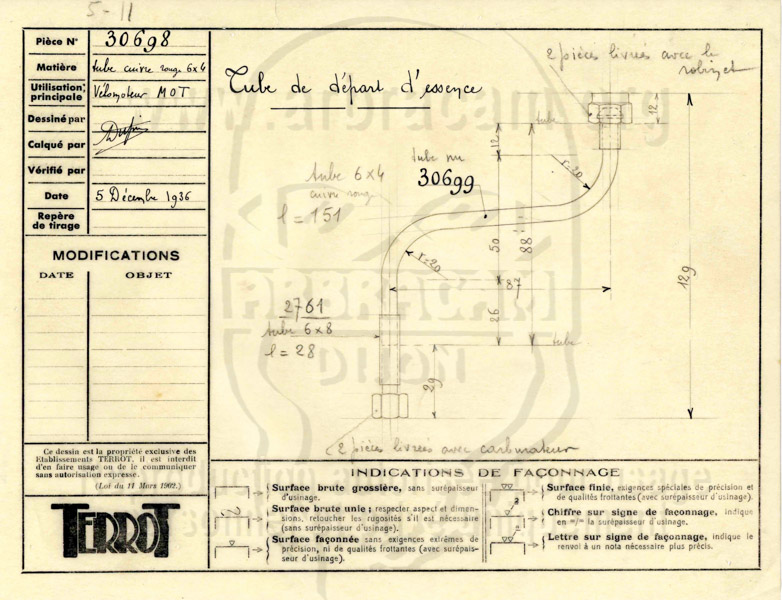 5-11
Pièce N° 30698
Matière tube cuivre rouge 6x4
Utilisation principale Vélomoteur MOT
Dessiné par
Calqué par
Vérifié par
Date 5 Décembre 1936
Repère de tirage
MODIFICATIONS
DATE OBJET
Ce dessin est la propriété exclusive des
Etablissements TERROT, il est interdit
d'en faire usage ou de le communiquer
sans autorisation expresse.
(Loi du 11 Mars 1902.)
TERROT
Tube de départ d'essence
2 pièces livrées avec le
robinet
12
tube
12
r=20
tube nu
30699
tube 6x4
cuivre rouge
l=151
50
88
129
r=20
87
2761
tube 6x8
l=28
26
tube
29
2 pièces livrées avec carburateur
INDICATIONS DE FAÇONNAGE
Surface brute grossière, sans surépaisseur
d'usinage.
Surface brute unie ; respecter aspect et dimen-
sions, retoucher les rugosités s'il est nécessaire
(sans surépaisseur d'usinage).
Surface façonnée sans exigences extrêmes de
précision, ni de qualités frottantes (avec surépais-
seur d'usinage).
Surface finie, exigences spéciales de précision et
de qualités frottantes (avec surépaisseur d'usinage).
Chiffre sur signe de façonnage, indique
en =/= la surépaisseur d'usinage.
Lettre sur signe de façonnage, indique le
renvoi à un nota nécessaire plus précis.
www.arbracam.org
ARBRACAM
DIJON